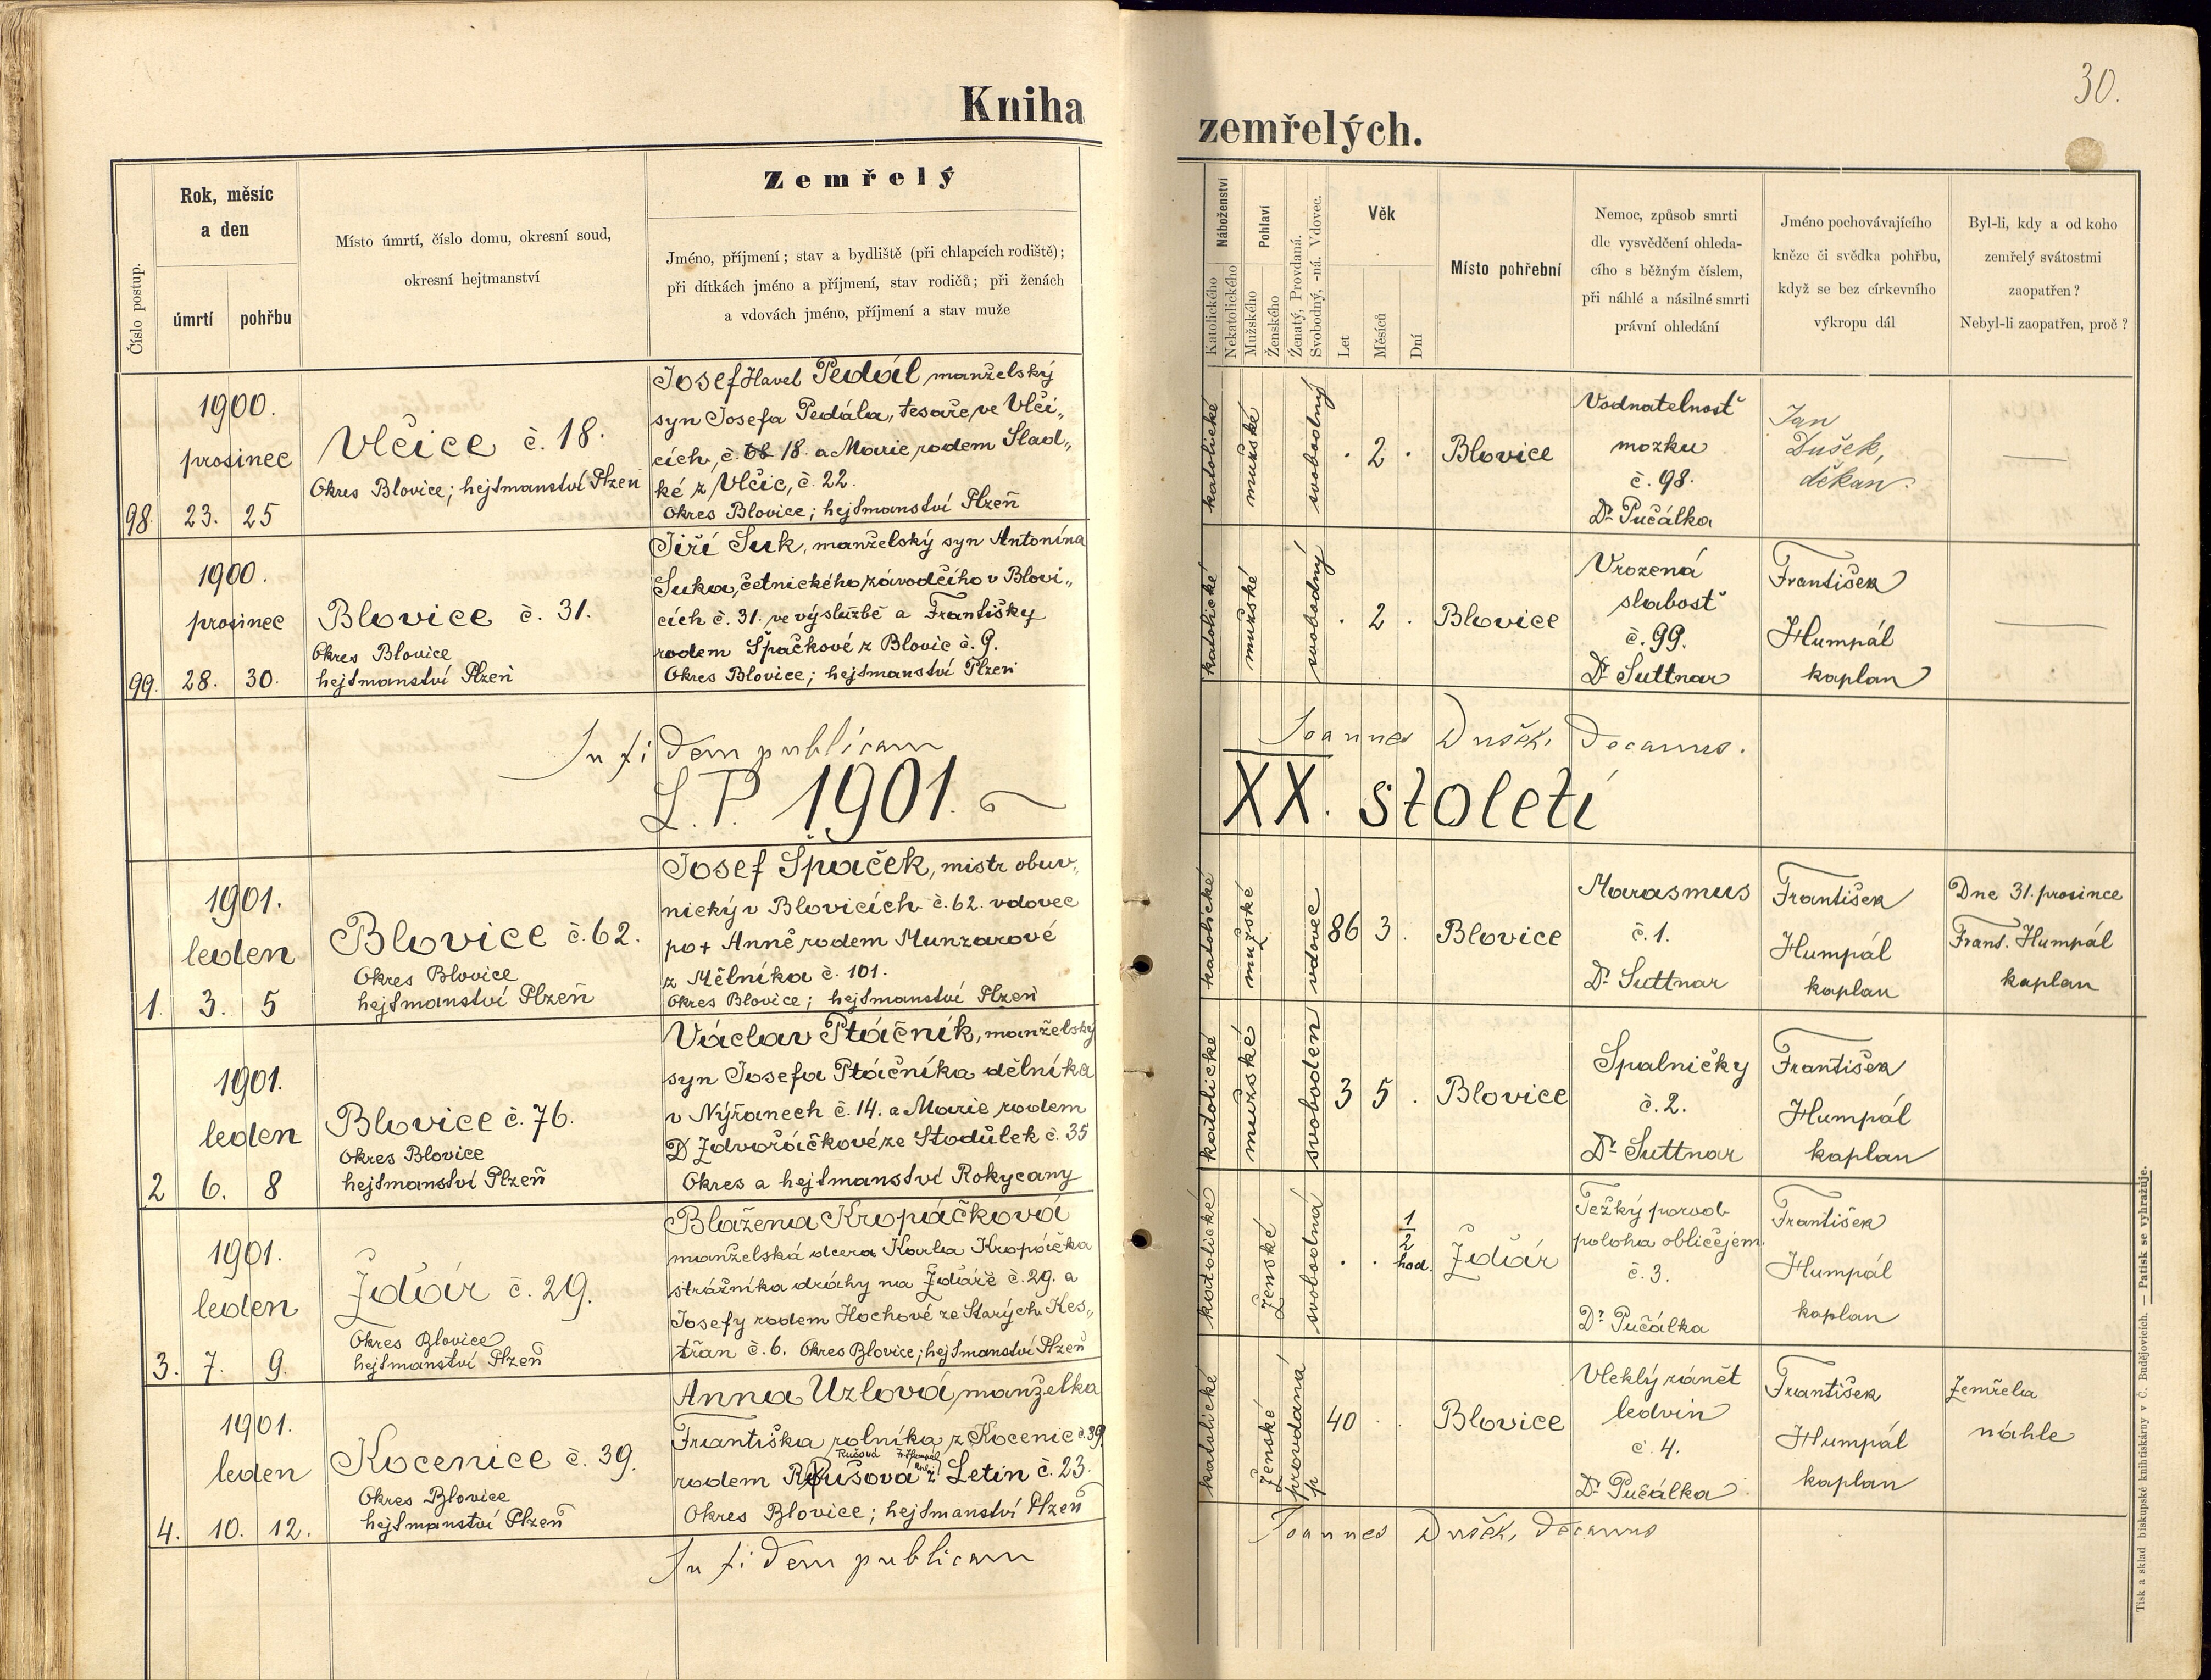 30.
Kniha zemřelých.
Číslo postup.
Rok, měsíc
a den
úmrtí
pohřbu
Místo úmrtí, číslo domu, okresní soud,
okresní hejtmanství
Zemřelý
Jméno, příjmení; stav a bydliště (při chlapcích rodiště);
při dítkách jméno a příjmení, stav rodičů; při ženách
a vdovách jméno, příjmení a stav muže
Náboženství
Katolického
Nekatolického
Pohlaví
Mužského
Ženského
Ženatý, Provdaná.
Svobodný, -ná. Vdovec.
Věk
Let
Měsíců
Dní
Místo pohřební
Nemoc, způsob smrti
dle vysvědčení ohleda-
cího s běžným číslem,
při náhlé a násilné smrti
právní ohledání
Jméno pochovávajícího
kněze či svědka pohřbu,
když se bez církevního
výkropu dál
Byl-li, kdy a od koho
zemřelý svátostmi
zaopatřen?
Nebyl-li zaopatřen, proč?
98.
1900.
prosinec
23. 25
Vlčice č. 18.
Okres Blovice; hejtmanství Plzeň
Josef Havel Pedál manželský
syn Josefa Pedála, tesaře, ve Vlči„
cích, č. 18. a Marie rodem Slad„
ké z Vlčic, č. 22.
Okres Blovice; hejtmanství Plzeň
katolické
mužské
svobodný
. 2 .
Blovice
Vodnatelnost
mozku
č. 98.
Dr Pučálka
Jan
Dušek,
děkan.
—
99.
1900.
prosinec
28. 30.
Blovice č. 31.
Okres Blovice
hejtmanství Plzeň
Jiří Suk, manželský syn Antonína
Suka, četnického závodčího v Blovi„
cích č. 31. ve výslužbě a Františky
rodem Špačkové z Blovic č. 9.
Okres Blovice; hejtmanství Plzeň
katolické
mužské
svobodný
. 2 .
Blovice
Vrozená
slabost
č. 99.
Dr Suttnar
František
Humpál
kaplan
—
In fidem publicam Joannes Dušek, Decanus.
L. P. 1901. XX. století
1.
1901.
leden
3. 5
Blovice č. 62.
Okres Blovice
hejtmanství Plzeň
Josef Špaček, mistr obuv„
nický v Blovicích č. 62. vdovec
po + Anně rodem Munzarové
z Mělníka č. 101.
Okres Blovice; hejtmanství Plzeň
katolické
mužské
vdovec
86 3 .
Blovice
Marasmus
č. 1.
Dr Suttnar
František
Humpál
kaplan
Dne 31. prosince
Frant. Humpál
kaplan
2
1901.
leden
6. 8
Blovice č. 76.
Okres Blovice
hejtmanství Plzeň
Václav Ptáčník, manželský
syn Josefa Ptáčníka dělníka
v Nýřanech č. 14. a Marie rodem
Zdvořáčkové ze Stodůlek č. 35
Okres a hejtmanství Rokycany
katolické
mužské
svoboden
3 5 .
Blovice
Spalničky
č. 2.
Dr Suttnar
František
Humpál
kaplan
3.
1901.
leden
7. 9.
Ždár č. 29.
Okres Blovice
hejtmanství Plzeň
Blažena Kropáčková
manželská dcera Karla Kropáčka
strážníka dráhy na Ždáře č. 29. a
Josefy rodem Hochové ze Starých Kes„
třan č. 6. Okres Blovice; hejtmanství Plzeň
katolické
ženské
svobodná
. . 1/2 hod.
Ždár
Težký porod
poloha obličejem
č. 3.
Dr Pučálka
František
Humpál
kaplan
4.
1901.
leden
10. 12.
Kocenice č. 39.
Okres Blovice
hejtmanství Plzeň
Anna Uzlová, manželka
Františka rolníka z Kocenic č. 39.
Rušová
rodem Rušová z Letin č. 23.
Okres Blovice; hejtmanství Plzeň
katolické
ženské
provdaná
p
40 . .
Blovice
Vleklý zánět
ledvin
č. 4.
Dr Pučálka
František
Humpál
kaplan
Zemřela
náhle
In fidem publicam Joannes Dušek, Decanus
Tisk a sklad biskupské knihtiskárny v Č. Budějovicích. — Patisk se vyhražuje.